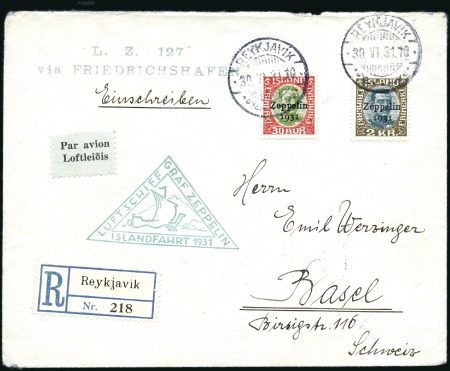 L. Z. 127
via FRIEDRICHSHAFEN
Einschreiben
REYKJAVIK
30.VI.31.10
REYKJAVIK
30.VI.31.10
ISLAND
Zeppelin
1931
30 AUR
Zeppelin
1931
2 KR
Par avion
Loftleiðis
LUFTSCHIFF GRAF ZEPPELIN
ISLANDFAHRT 1931
Herrn
Emil Werzinger
Basel
116
Schweiz
R
Reykjavik
Nr. 218